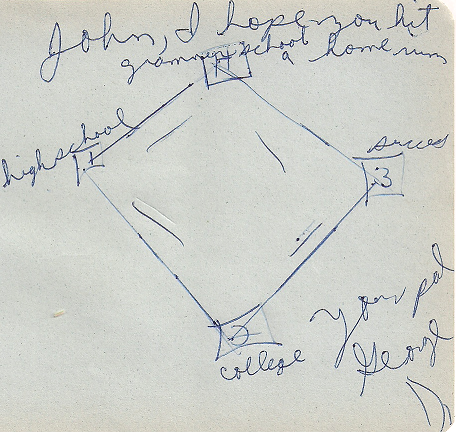 John, I hope you hit
a home run
grammer school
H
high school
1
succes
3
2
college
Your pal
George